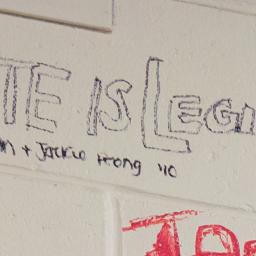 TE IS LEGI
n + Jackie Hong '10